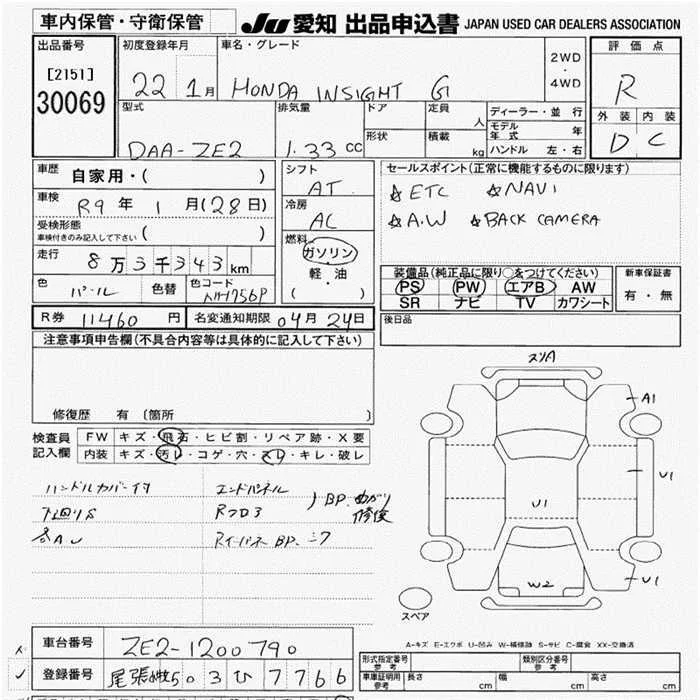 車内保管・守衛保管
JU 愛知 出品申込書 JAPAN USED CAR DEALERS ASSOCIATION
出品番号 初度登録年月 車名・グレード 評価点
[2151] 22 1月 HONDA INSIGHT G 2WD・4WD R
30069
型式 排気量 ドア 定員 人 ディーラー・並行 外装 内装
モデル年式 年
DAA-ZE2 1.33 cc 形状 積載 kg ハンドル 左・右 D C
車歴 自家用・( )
シフト AT
セールスポイント(正常に機能するものに限ります)
☆ETC ☆NAVI
☆A.W ☆BACK CAMERA
車検 R9年 1月(28日)
冷房 AC
受検形態 ( )
車検付きのみ記入して下さい
燃料 ガソリン
軽・油
( )
走行 8万3千343km
装備品(純正品に限り○をつけてください) 新車保証書
PS PW エアB AW 有・無
SR ナビ TV カワシート
色 パール 色替 色コード NH756P
R券 11460円 名変通知期限 04月24日
後日品
注意事項申告欄(不具合内容等は具体的に記入して下さい)
修復歴 有〔箇所 〕
検査員記入欄 FW キズ・飛石・ヒビ割・リペア跡・X要
内装 キズ・汚レ・コゲ・穴・スレ・キレ・破レ
ハンドルカバー付 エンドパネル
下回りS Rフロア BP.曲がり 修復
BP.
スリA
A1
U1
U1
W2
U1
スペア
A-キズ E-エクボ U-凹み W-補修跡 S-サビ C-腐食 XX-交換済
車台番号 ZE2-1200790
登録番号 尾張小牧503ひ7766
形式指定番号 参考 類別区分番号 参考
車庫証明用 参考 長さ cm 幅 cm 高さ cm